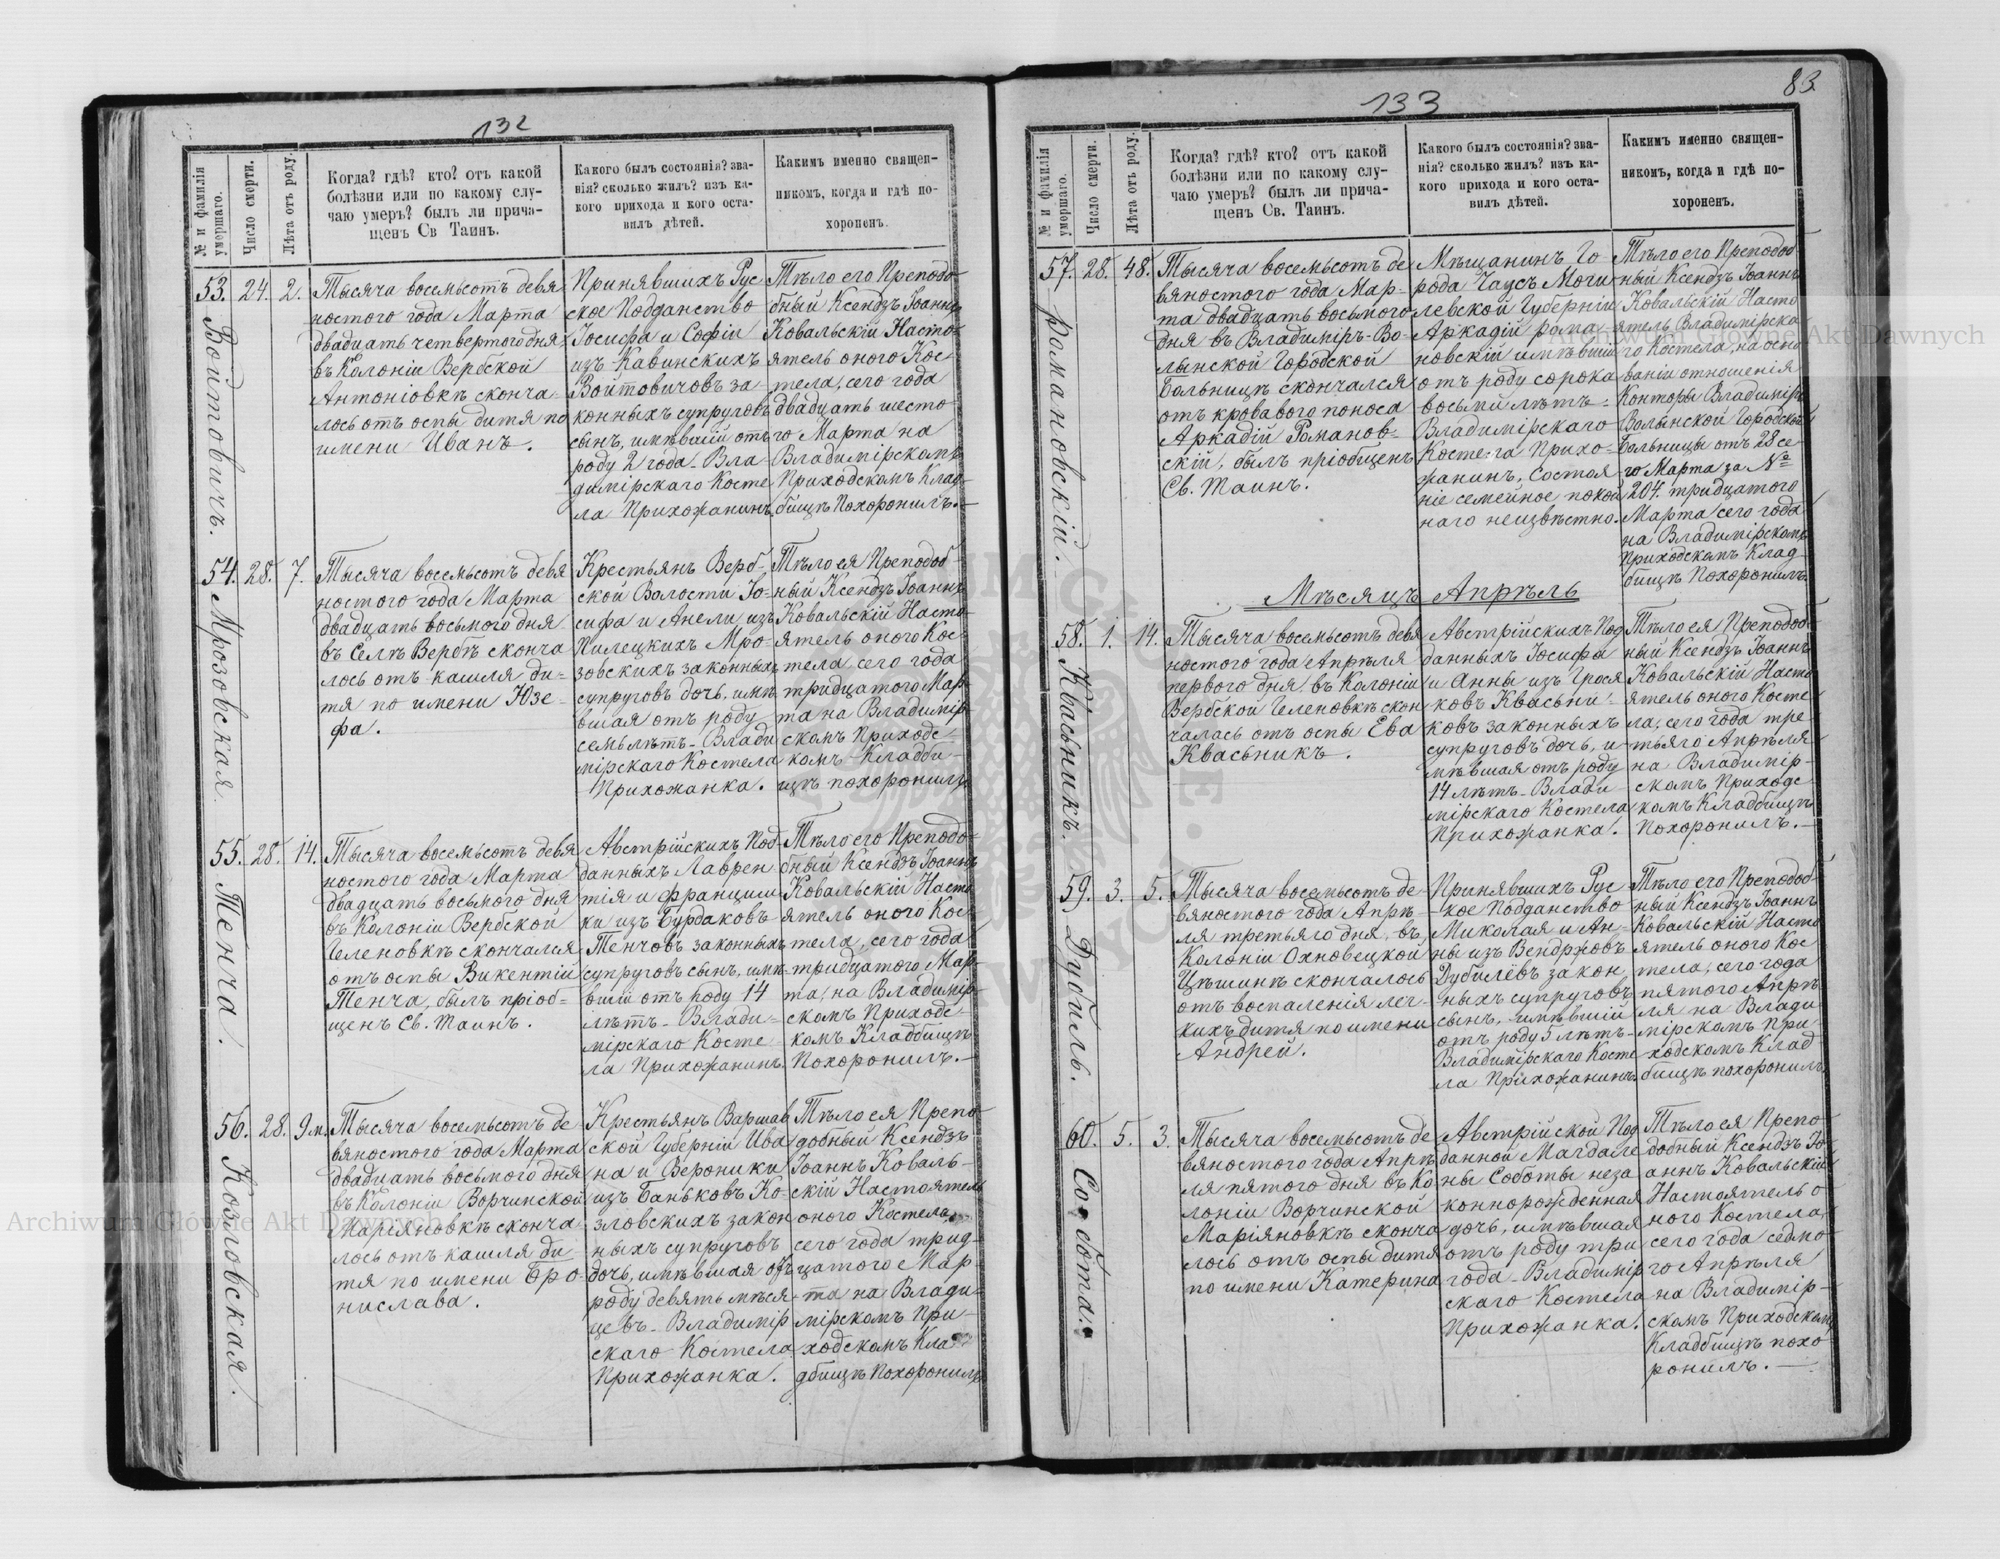 132
№ и фамилія умершаго.
Число смерти.
Лѣта отъ роду.
Когда? гдѣ? кто? отъ какой
болѣзни или по какому слу-
чаю умеръ? былъ ли прича-
щенъ Св Таинъ.
Какого былъ состоянія? зва-
нія? сколько жилъ? изъ ка-
кого прихода и кого оста-
вилъ дѣтей.
Какимъ именно священ-
никомъ, когда и гдѣ по-
хороненъ.
53. Войтовичъ.
24.
2.
Тысяча восемьсотъ девя
ностого года Марта
двадцать четвертого дня
въ Колоніи Вербской
Антоніовкѣ сконча-
лось отъ оспы дитя по
имени Иванъ.
Принявшихъ Рус
ское Подданство
Іосифа и Софіи
изъ Кавинскихъ
Войтовичовъ за-
конныхъ супруговъ
сынъ, имѣвшій отъ
роду 2 года - Вла-
димірскаго Косте
ла Прихожанинъ.
Тѣло его Преподо-
бный Ксендзъ Іоаннъ
Ковальскій Насто-
ятель оного Кос-
тела, сего года
двадцать шесто
го Марта на
Владимірскомъ
Приходскомъ Клад-
бищѣ Похоронилъ.-
54. Мрозовская.
28.
7.
Тысяча восемьсотъ девя
ностого года Марта
двадцать восьмого дня
въ Селѣ Вербѣ сконча
лось отъ кашля ди-
тя по имени Юзе-
фа.
Крестьянъ Верб-
ской Волости Іо-
сифа и Анели изъ
Пилецкихъ Мро-
зовскихъ законныхъ
супруговъ дочь, имѣ
вшая отъ роду
семь лѣтъ - Влади
мірскаго Костела
Прихожанка.
Тѣло ея Преподоб-
ный Ксендзъ Іоаннъ
Ковальскій Насто-
ятель оного Кос-
тела сего года
тридцатого Мар-
та на Владимір
скомъ Приходс-
комъ Кладби-
щѣ похоронилъ
55. Тенча.
28.
14.
Тысяча восемьсотъ девя
ностого года Марта
двадцать восьмого дня
въ Колоніи Вербской
Геленовкѣ скончался
отъ оспы Викентій
Тенча, былъ пріоб-
щенъ Св. Таинъ.
Австрійскихъ Под-
данныхъ Лаврен
тія и Францишк
ки изъ Бурдаковъ
Тенчовъ законныхъ
супруговъ сынъ, имѣ-
вшій отъ роду 14
лѣтъ - Влади-
мірскаго Косте-
ла Прихожанинъ.
Тѣло его Преподо-
бный Ксендзъ Іоаннъ
Ковальскій Насто
ятель оного Кос-
тела, сего года
тридцатого Мар-
та, на Владимір-
скомъ Приходс-
комъ Кладбищѣ
Похоронилъ.-
56. Козловская.
28.
9 м.
Тысяча восемьсотъ де
вяностого года Марта
двадцать восьмого дня
въ Колоніи Ворчинской
Маріяновкѣ сконча
лось отъ кашля ди-
тя по имени Бро-
нислава.
Крестьянъ Варшав
ской Губерніи Ива
на и Вероники
изъ Баньковъ Ко-
зловскихъ закон
ныхъ супруговъ
дочь, имѣвшая отъ
роду девять мѣся-
цевъ - Владимір
скаго Костела
Прихожанка.
Тѣло ея Препо-
добный Ксендзъ
Іоаннъ Коваль-
скій Настоятель
оного Костела,
сего года трид-
цатого Мар-
та на Влади-
мірскомъ При-
ходскомъ Кла
дбищѣ Похоронилъ
83.
133
№ и фамилія умершаго.
Число смерти.
Лѣта отъ роду.
Когда? гдѣ? кто? отъ какой
болѣзни или по какому слу-
чаю умеръ? былъ ли прича-
щенъ Св. Таинъ.
Какого былъ состоянія? зва-
нія? сколько жилъ? изъ ка-
кого прихода и кого оста-
вилъ дѣтей.
Какимъ именно священ-
никомъ, когда и гдѣ по-
хороненъ.
57. Романовскій.
28.
48.
Тысяча восемьсотъ де
вяностого года Мар-
та двадцать восьмого
дня въ Владимірѣ-Во-
лынской Городской
Больницѣ скончался
отъ кровавого поноса
Аркадій Романов-
скій, былъ пріобщенъ
Св. Таинъ.
Мѣщанинъ Го-
рода Чаусъ Моги
левской Губерніи
Аркадій Рома-
новскій имѣвшій
отъ роду сорока
восьми лѣтъ -
Владимірскаго
Костела Прихо-
жанинъ. Состоя-
ніе семейное покой
наго неизвѣстно.
Тѣло его Преподоб
ный Ксендзъ Іоаннъ
Ковальскій Насто
ятель Владимірска
го Костела, на осно
ваніи отношенія
Конторы Владимірѣ
Волынской Городской
Больницы отъ 28 се
го Марта за №
204. тридцатого
Марта сего года
на Владимірскомъ
Приходскомъ Клад-
бищѣ Похоронилъ.
Мѣсяцъ Апрѣль
58. Квасьникъ.
1.
14.
Тысяча восемьсотъ девя
ностого года Апрѣля
первого дня въ Колоніи
Вербской Геленовкѣ скон
чалась отъ оспы Ева
Квасьникъ.
Австрійскихъ Под
данныхъ Іосифа
и Анны изъ Грося
ковъ Квасьни-
ковъ законныхъ
супруговъ дочь, и-
мѣвшая отъ роду
14 лѣтъ - Влади
мірскаго Костела
Прихожанка.
Тѣло ея Преподоб-
ный Ксендзъ Іоаннъ
Ковальскій Насто
ятель оного Косте
ла, сего года тре
тьяго Апрѣля
на Владимір-
скомъ Приходс
комъ Кладбищѣ
Похоронилъ.-
59. Дубиль.
3.
5.
Тысяча восемьсотъ де-
вяностого года Апрѣ-
ля третьяго дня въ
Колоніи Охновецкой
Цѣшинѣ скончалось
отъ воспаленія лег-
кихъ дитя по имени
Андрей.
Принявшихъ Рус
кое Подданство
Миколая и Ан-
ны изъ Вендржовъ
Дубилёвъ закон,
ныхъ супруговъ
сынъ, имѣвшій
отъ роду 5 лѣтъ -
Владимірскаго Косте
ла Прихожанинъ.
Тѣло его Преподоб-
ный Ксендзъ Іоаннъ
Ковальскій Насто
ятель оного Кос
тела, сего года
пятого Апрѣ
ля на Влади
мірскомъ При-
ходскомъ Клад-
бищѣ похоронилъ
60. Соботта.
5.
3.
Тысяча восемьсотъ де
вяностого года Апрѣ
ля пятого дня въ Ко
лоніи Ворчинской
Маріяновкѣ сконча
лось отъ оспы дитя
по имени Катерина
Австрійской Под
данной Магдале
ны Соботы неза
коннорожденная
дочь, имѣвшая
отъ роду три
года - Владимір
скаго Костела
Прихожанка.
Тѣло ея Препо-
добный Ксендзъ Іо-
аннъ Ковальскій
Настоятель о
ного Костела,
сего года седмо-
го Апрѣля
на Владимір-
скомъ Приходскомъ
Кладбищѣ похо
ронилъ.-
Archiwum Główne Akt Dawnych
Archiwum Główne Akt Dawnych